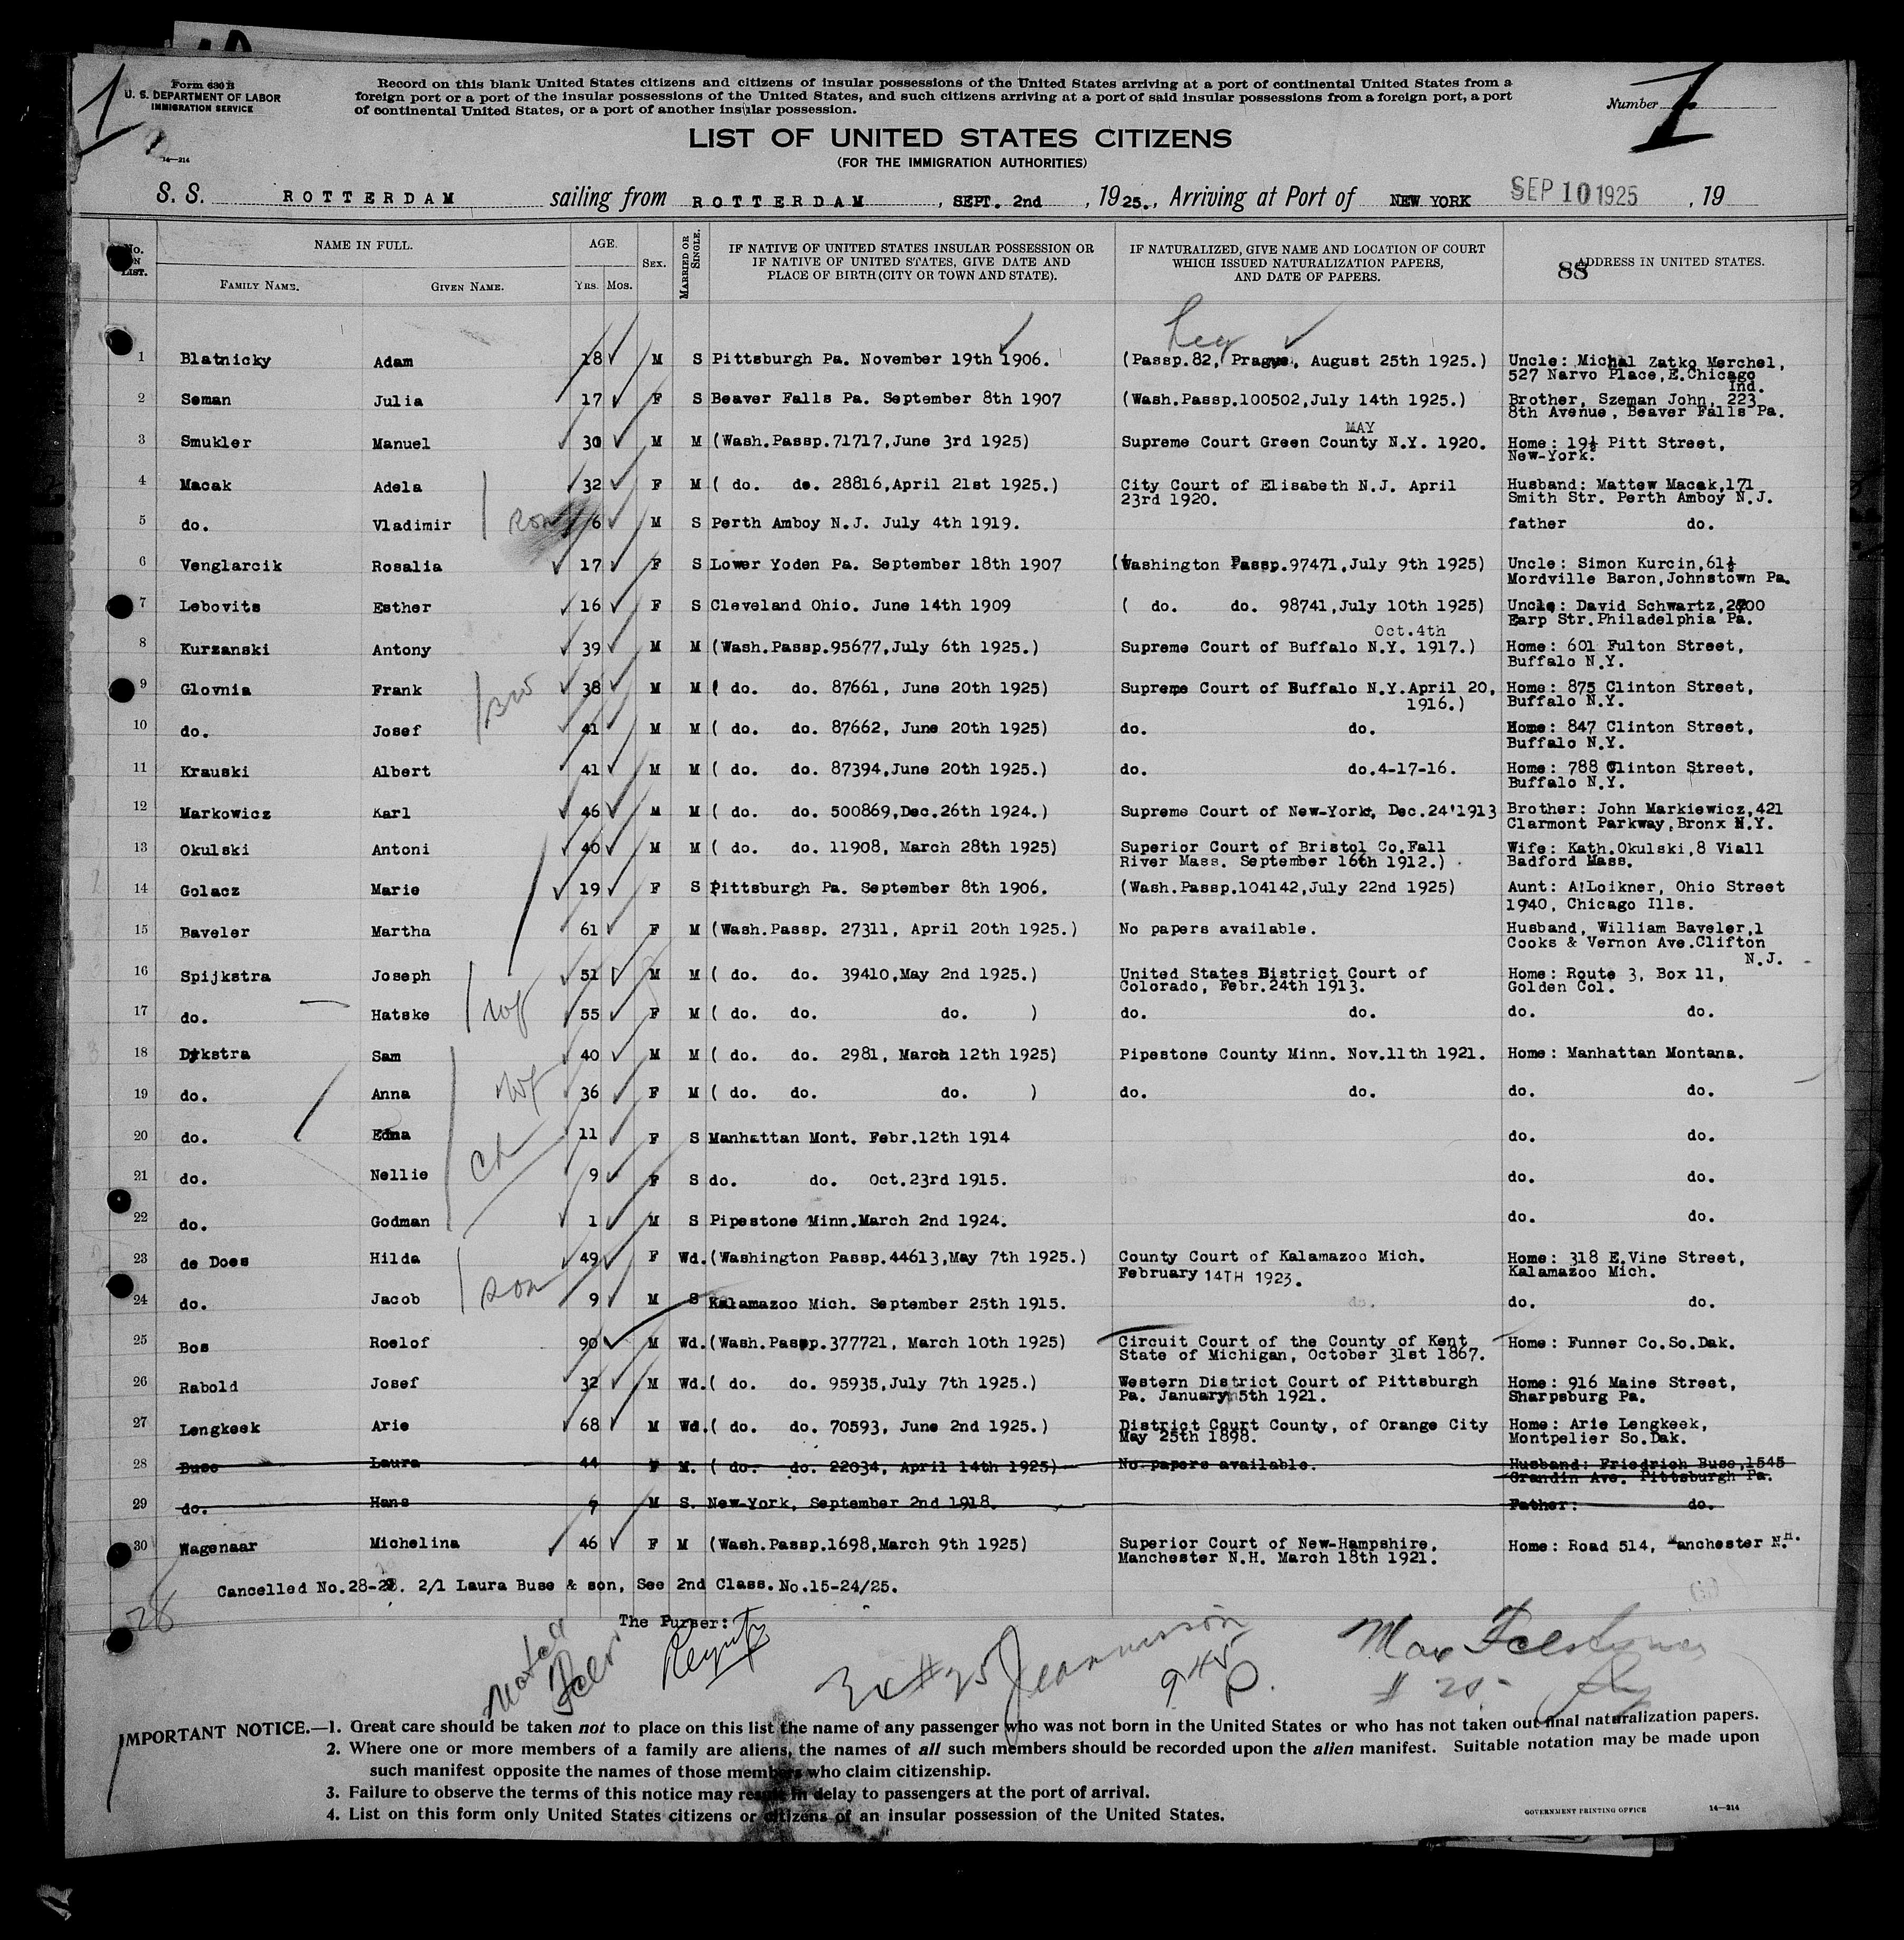 1
Form 630 B
U. S. DEPARTMENT OF LABOR
IMMIGRATION SERVICE
14—214
Record on this blank United States citizens and citizens of insular possessions of the United States arriving at a port of continental United States from a
foreign port or a port of the insular possessions of the United States, and such citizens arriving at a port of said insular possessions from a foreign port, a port
of continental United States, or a port of another insular possession.
Number 1
LIST OF UNITED STATES CITIZENS
(FOR THE IMMIGRATION AUTHORITIES)
S. S. ROTTERDAM sailing from ROTTERDAM, SEPT. 2nd, 1925., Arriving at Port of NEW YORK SEP 10 1925, 19
No. ON LIST. NAME IN FULL. AGE. SEX. MARRIED OR SINGLE. IF NATIVE OF UNITED STATES INSULAR POSSESSION OR IF NATIVE OF UNITED STATES, GIVE DATE AND PLACE OF BIRTH (CITY OR TOWN AND STATE). IF NATURALIZED, GIVE NAME AND LOCATION OF COURT WHICH ISSUED NATURALIZATION PAPERS, AND DATE OF PAPERS. 88 ADDRESS IN UNITED STATES.
FAMILY NAME. GIVEN NAME. YRS. MOS.
1 Blatnicky Adam 18 M S Pittsburgh Pa. November 19th 1906. (Passp.82, Prague, August 25th 1925.) Uncle: Michal Zatko Merchel,
527 Narvo Place, E.Chicago
Ind.
2 Seman Julia 17 F S Beaver Falls Pa. September 8th 1907 (Wash.Passp.100502,July 14th 1925.) Brother, Szeman John, 223
8th Avenue, Beaver Falls Pa.
3 Smukler Manuel 30 M M (Wash.Passp.71717,June 3rd 1925) Supreme Court Green County N.Y. MAY 1920. Home: 19½ Pitt Street,
New-York.
4 Macak Adela 32 F M ( do. do. 28816,April 21st 1925.) City Court of Elisabeth N.J. April Husband: Mattew Macak,171
23rd 1920. Smith Str. Perth Amboy N.J.
5 do. Vladimir son 6 M S Perth Amboy N.J. July 4th 1919. father do.
6 Venglarcik Rosalia 17 F S Lower Yoden Pa. September 18th 1907 (Washington Passp.97471,July 9th 1925) Uncle: Simon Kurcin,61½
Mordville Baron,Johnstown Pa.
7 Lebovits Esther 16 F S Cleveland Ohio. June 14th 1909 ( do. do. 98741,July 10th 1925) Uncle: David Schwartz,
Earp Str.Philadelphia Pa.
8 Kurzanski Antony 39 M M (Wash.Passp.95677,July 6th 1925.) Supreme Court of Buffalo N.Y. Oct.4th 1917.) Home: 601 Fulton Street,
Buffalo N.Y.
9 Glovnia Frank 38 M M ( do. do. 87661, June 20th 1925) Supreme Court of Buffalo N.Y.April 20, Home: 875 Clinton Street,
1916.) Buffalo N.Y.
10 do. Josef 41 M M ( do. do. 87662, June 20th 1925) do. do. Home: 847 Clinton Street,
Buffalo N.Y.
11 Krauski Albert 41 M M ( do. do. 87394,June 20th 1925.) do. do.4-17-16. Home: 788 Clinton Street,
Buffalo N.Y.
12 Markowicz Karl 46 M M ( do. do. 500869,Dec.26th 1924.) Supreme Court of New-York, Dec.24'1913 Brother: John Markiewicz,421
Clarmont Parkway,Bronx N.Y.
13 Okulski Antoni 40 M M ( do. do. 11908, March 28th 1925) Superior Court of Bristol Co.Fall Wife: Kath.Okulski,8 Viall
River Mass. September 16th 1912.) Badford Mass.
14 Golacz Marie 19 F S Pittsburgh Pa. September 8th 1906. (Wash.Passp.104142,July 22nd 1925) Aunt: A.Loikner, Ohio Street
1940, Chicago Ills.
15 Baveler Martha 61 F M (Wash.Passp. 27311, April 20th 1925.) No papers available. Husband, William Baveler,1
Cooks & Vernon Ave.Clifton
N.J.
16 Spijkstra Joseph 51 M M ( do. do. 39410,May 2nd 1925.) United States District Court of Home: Route 3, Box 11,
Colorado, Febr.24th 1913. Golden Col.
17 do. Hatske wf 55 F M ( do. do. do. ) do. do. do. do.
18 Dykstra Sam 40 M M ( do. do. 2981, March 12th 1925) Pipestone County Minn. Nov.11th 1921. Home: Manhattan Montana.
19 do. Anna wf 36 F M ( do. do. do. ) do. do. do. do.
20 do. Edna 11 F S Manhattan Mont. Febr.12th 1914 do. do.
21 do. Nellie ch 9 F S do. do. Oct.23rd 1915. do. do.
22 do. Godman 1 M S Pipestone Minn.March 2nd 1924. do. do.
23 de Does Hilda 49 F Wd. (Washington Passp.44613,May 7th 1925.) County Court of Kalamazoo Mich. Home: 318 E.Vine Street,
February 14TH 1923. Kalamazoo Mich.
24 do. Jacob son 9 M S Kalamazoo Mich. September 25th 1915. do. do. do.
25 Bos Roelof 90 M Wd. (Wash.Passp.377721, March 10th 1925) Circuit Court of the County of Kent Home: Funner Co.So.Dak.
State of Michigan, October 31st 1867.
26 Rabold Josef 32 M Wd. ( do. do. 95935,July 7th 1925.) Western District Court of Pittsburgh Home: 916 Maine Street,
Pa. January 5th 1921. Sharpsburg Pa.
27 Lengkeek Arie 68 M Wd. ( do. do. 70593, June 2nd 1925.) District Court County, of Orange City Home: Arie Lengkeek,
May 25th 1898. Montpelier So.Dak.
28 Buse Laura 44 F M. ( do. do. 22034, April 14th 1925) No papers available. Husband: Friedrich Buse,1545
Grandin Ave. Pittsburgh Pa.
29 do. Hans 7 M S. New-York, September 2nd 1918. Father: do.
30 Wagenaar Michelina 46 F M (Wash.Passp.1698,March 9th 1925) Superior Court of New-Hampshire, Home: Road 514, Manchester N.H.
Manchester N.H. March 18th 1921.
Cancelled No.28-29. 2/1 Laura Buse & son, See 2nd Class. No.15-24/25.
28
The Purser:
945
IMPORTANT NOTICE.—1. Great care should be taken not to place on this list the name of any passenger who was not born in the United States or who has not taken out final naturalization papers.
2. Where one or more members of a family are aliens, the names of all such members should be recorded upon the alien manifest. Suitable notation may be made upon
such manifest opposite the names of those members who claim citizenship.
3. Failure to observe the terms of this notice may result in delay to passengers at the port of arrival.
4. List on this form only United States citizens or citizens of an insular possession of the United States.
GOVERNMENT PRINTING OFFICE 14—214